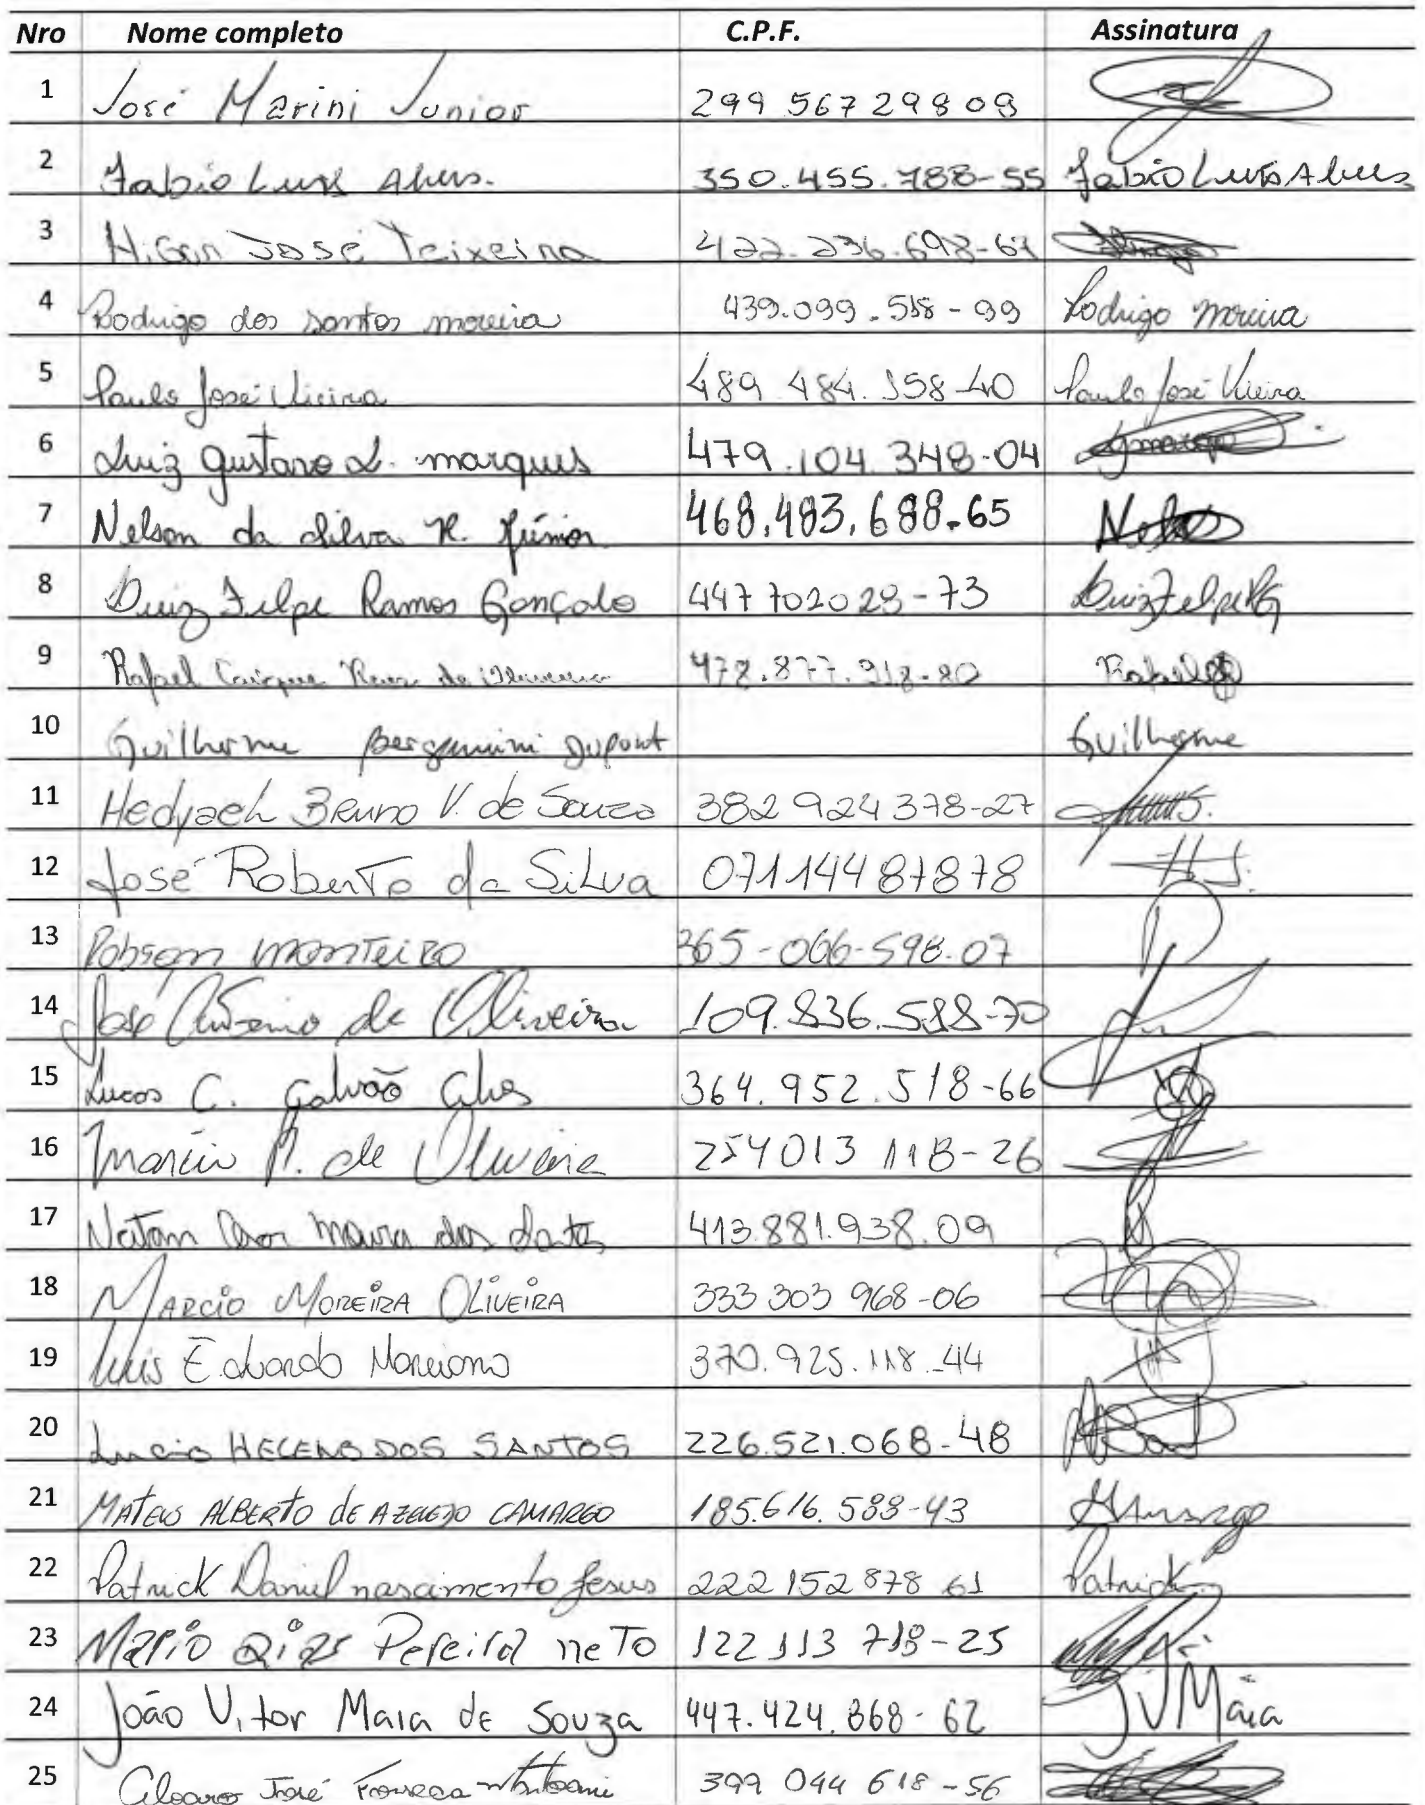 Nro Nome completo C.P.F. Assinatura
1 José Marini Junior 299 567 298 09
2 Fabio Luis Alves. 350.455.788-55 Fabio Luis Alves
3 José Teixeira 422.236.698-61
4 Rodrigo dos santos moreira 439.099.518-99 Rodrigo moreira
5 Paulo José Vieira 489 484.158-40 Paulo José Vieira
6 Luiz Gustavo L. marques 479.104.348-04
7 Nelson da silva R. Júnior 468.483.688-65
8 Luiz Felpe Ramos Gonçalo 447702028-73 Luiz Felpe RG
9 Rafael 478.877.918-80 Rafael
10 Guilherme Bergamini Dupont Guilherme
11 Hedyaeh Bruno V. de Souza 382 924 378-27
12 José Roberto da Silva 07114487878
13 Robson monteiro 365-066-598.07
14 José Antonio de Oliveira 109.836.588-70
15 Lucas C. Galvão Alves 364.952.518-66
16 Marcio A. de Oliveira 254013 118-26
17 Natan dos Santos 413.881.938.09
18 MARCIO MOREIRA OLIVEIRA 333 303 968-06
19 Luis Eduardo Marciano 370.925.118-44
20 Lucio HELENO DOS SANTOS 226.521.068-48
21 MATEUS ALBERTO de AZEVEDO CAMARGO 185.616.588-43
22 Patrick Daniel nascimento Jesus 222 152 878 61 Patrick
23 Mario Dias Pereira neto 122 113 718-25
24 João Vitor Maia de Souza 447.424.868-62 JVMaia
25 José Fonseca 399 044 618-56